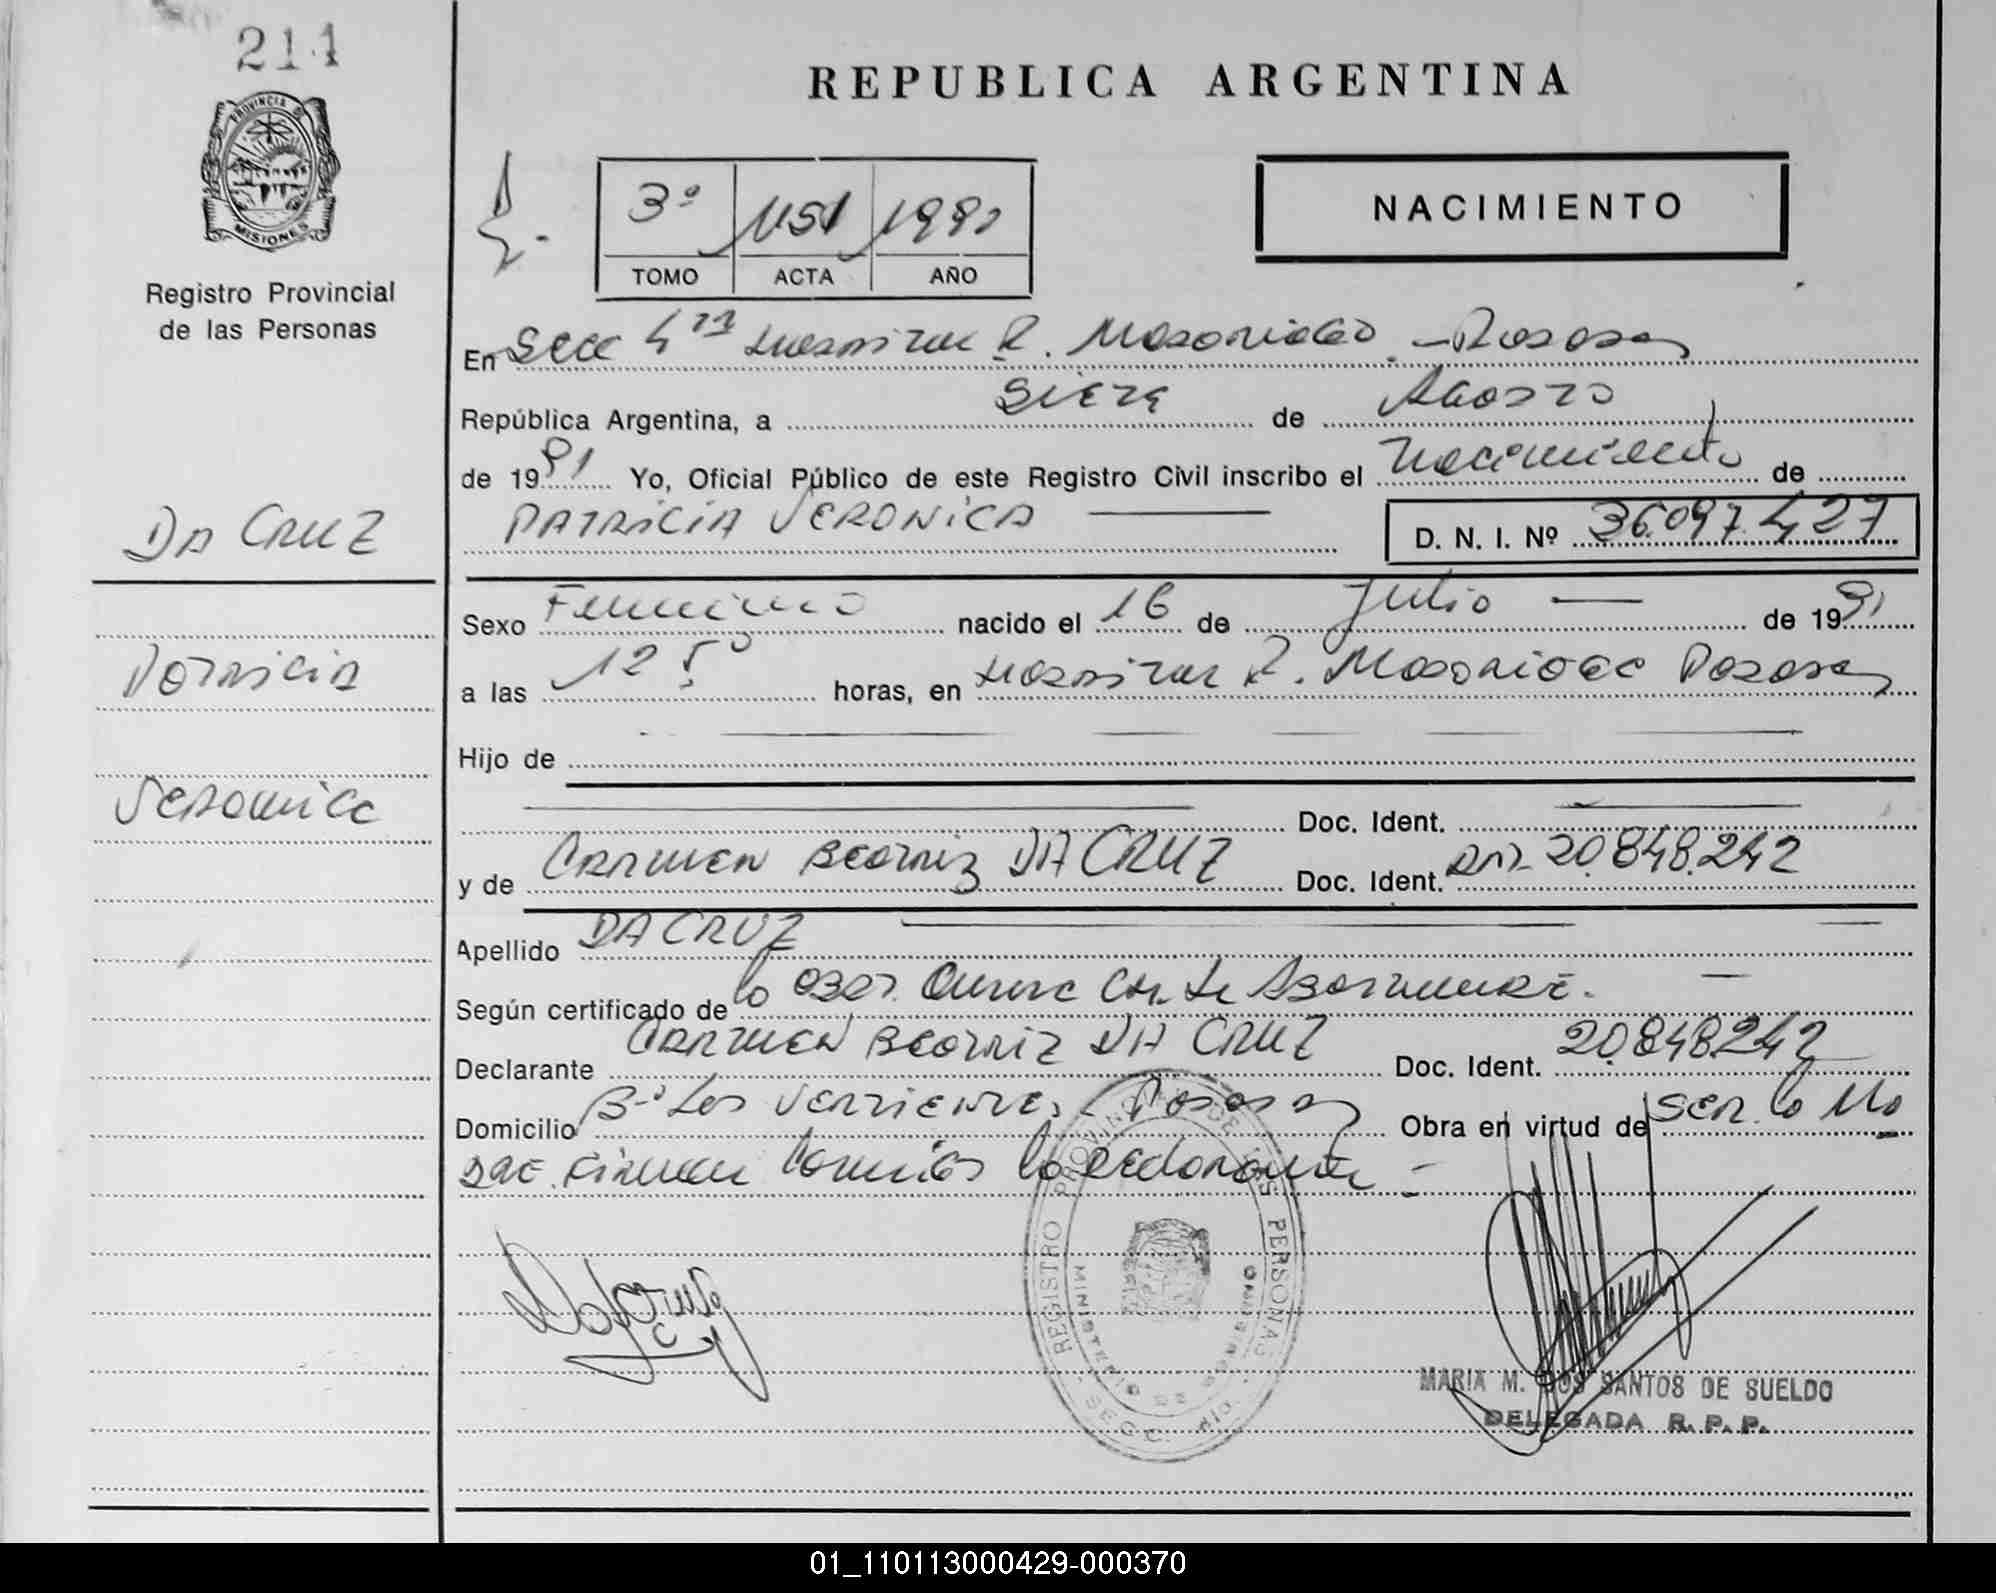 214
REPUBLICA ARGENTINA
PROVINCIA DE
MISIONES
Registro Provincial
de las Personas
3º 1151 1991
TOMO ACTA AÑO
NACIMIENTO
En Secc 4ta Hospital R. Madariaga - Posadas
República Argentina, a Siete de Agosto
de 1991 Yo, Oficial Público de este Registro Civil inscribo el Nacimiento de
PATRICIA VERONICA D. N. I. Nº 36.097.427
DA CRUZ
Patricia
Veronica
Sexo Femenino nacido el 16 de Julio de 1991
a las 12 50 horas, en Hospital R. Madariaga Posadas
Hijo de
Doc. Ident.
y de CARMEN BEATRIZ DA CRUZ Doc. Ident. DNI 20.848.242
Apellido DA CRUZ
Según certificado de la Obst.
Declarante CARMEN BEATRIZ DA CRUZ Doc. Ident. 20.848.242
Domicilio Bº Las Vertientes - Posadas Obra en virtud de ser la Ma
dre. Firman conmigo la declarante -
REGISTRO PROVINCIAL DE LAS PERSONAS
MINISTERIO DE GOBIERNO
MARIA M. DOS SANTOS DE SUELDO
DELEGADA R. P. P.
01_110113000429-000370